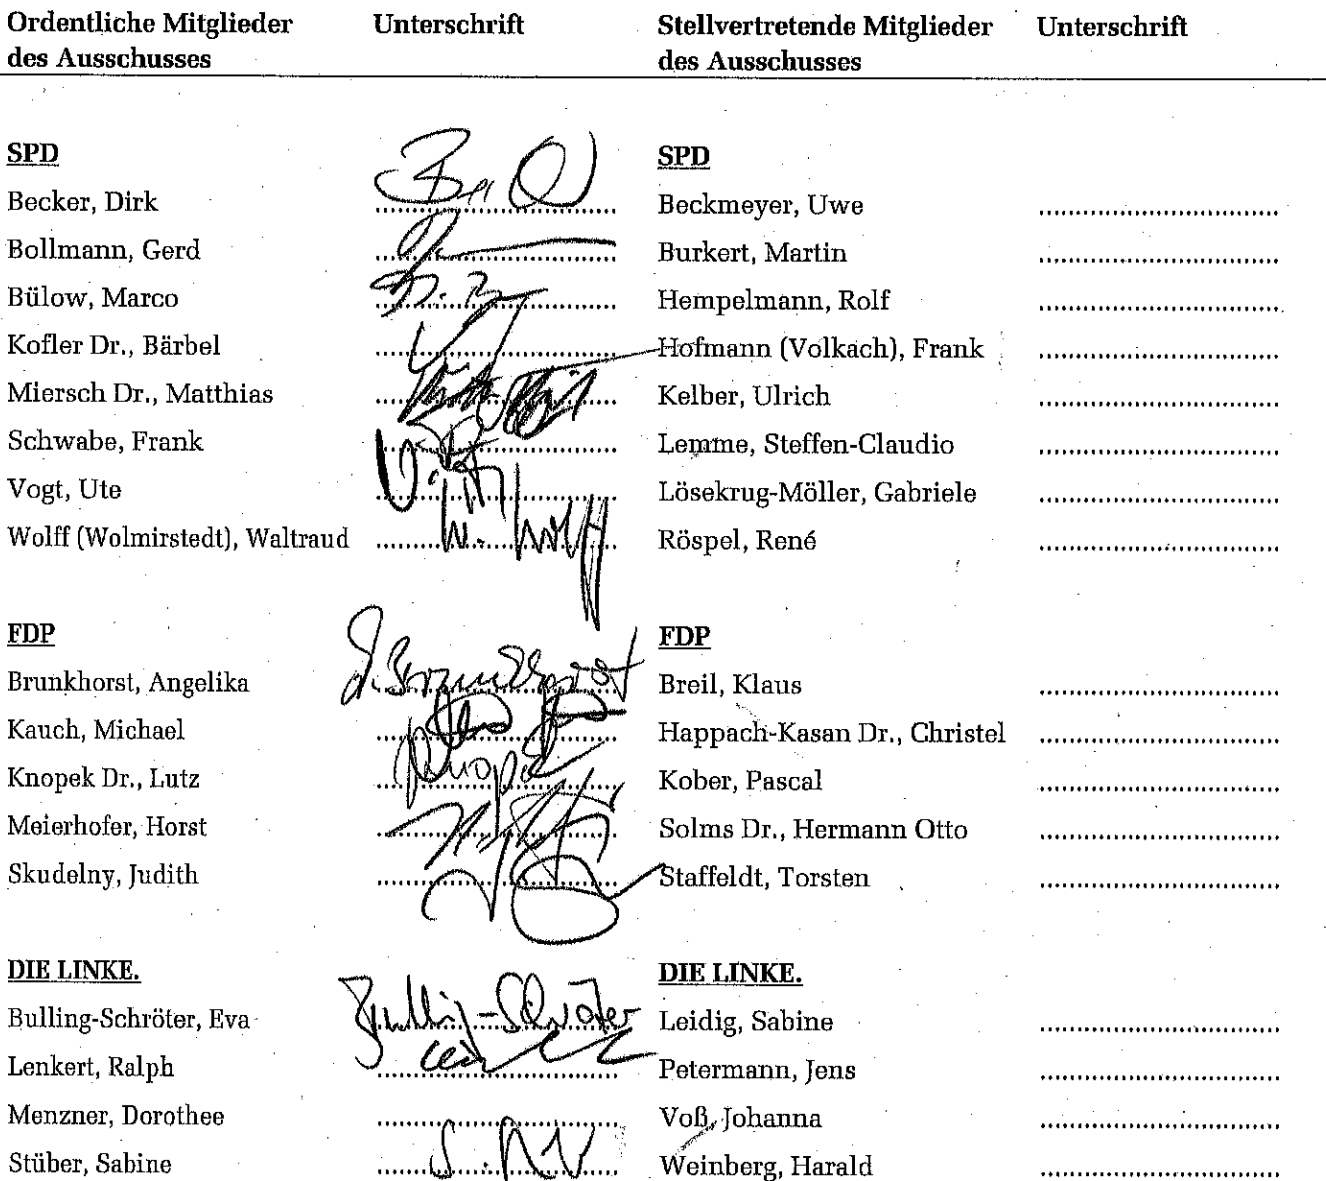 Ordentliche Mitglieder des Ausschusses Unterschrift Stellvertretende Mitglieder des Ausschusses Unterschrift
SPD SPD
Becker, Dirk Beckmeyer, Uwe
Bollmann, Gerd Burkert, Martin
Bülow, Marco Hempelmann, Rolf
Kofler Dr., Bärbel Hofmann (Volkach), Frank
Miersch Dr., Matthias Kelber, Ulrich
Schwabe, Frank Lemme, Steffen-Claudio
Vogt, Ute Lösekrug-Möller, Gabriele
Wolff (Wolmirstedt), Waltraud W. Wolff Röspel, René
FDP FDP
Brunkhorst, Angelika A. Brunkhorst Breil, Klaus
Kauch, Michael Happach-Kasan Dr., Christel
Knopek Dr., Lutz Knopek Kober, Pascal
Meierhofer, Horst Solms Dr., Hermann Otto
Skudelny, Judith Staffeldt, Torsten
DIE LINKE. DIE LINKE.
Bulling-Schröter, Eva Bulling-Schröter Leidig, Sabine
Lenkert, Ralph Petermann, Jens
Menzner, Dorothee Voß, Johanna
Stüber, Sabine Weinberg, Harald